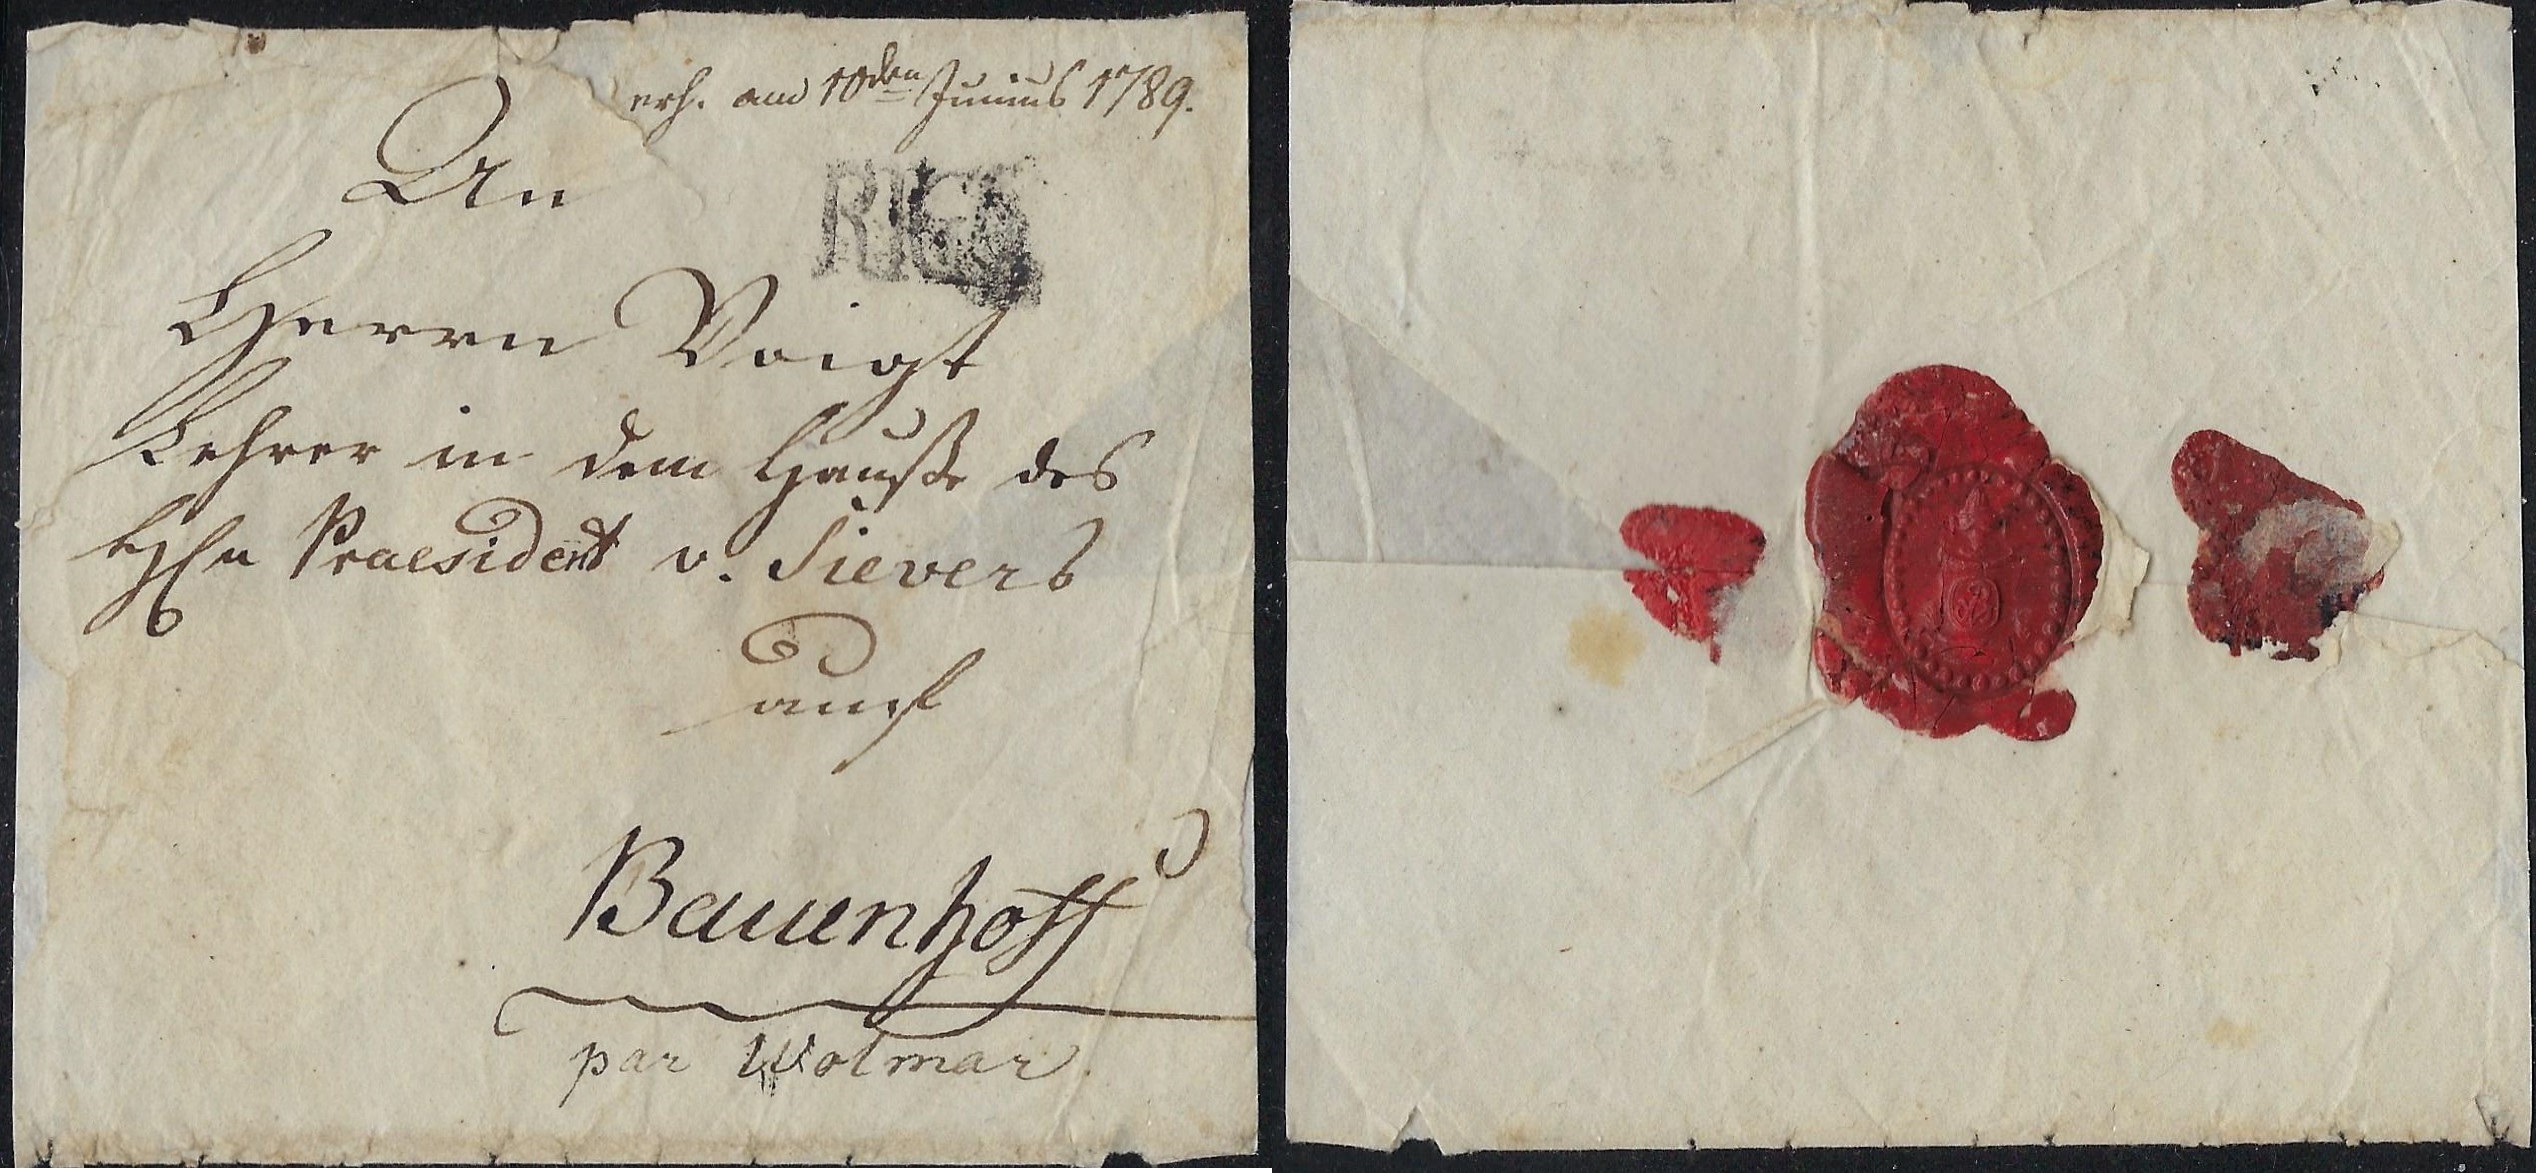 erh. am 10den Junius 1789.
An
RIGA
Herrn Voigt
Lehrer in dem Hauße des
Hn Praesident v. Sievers
auf
Bauenhoff
par Wolmar